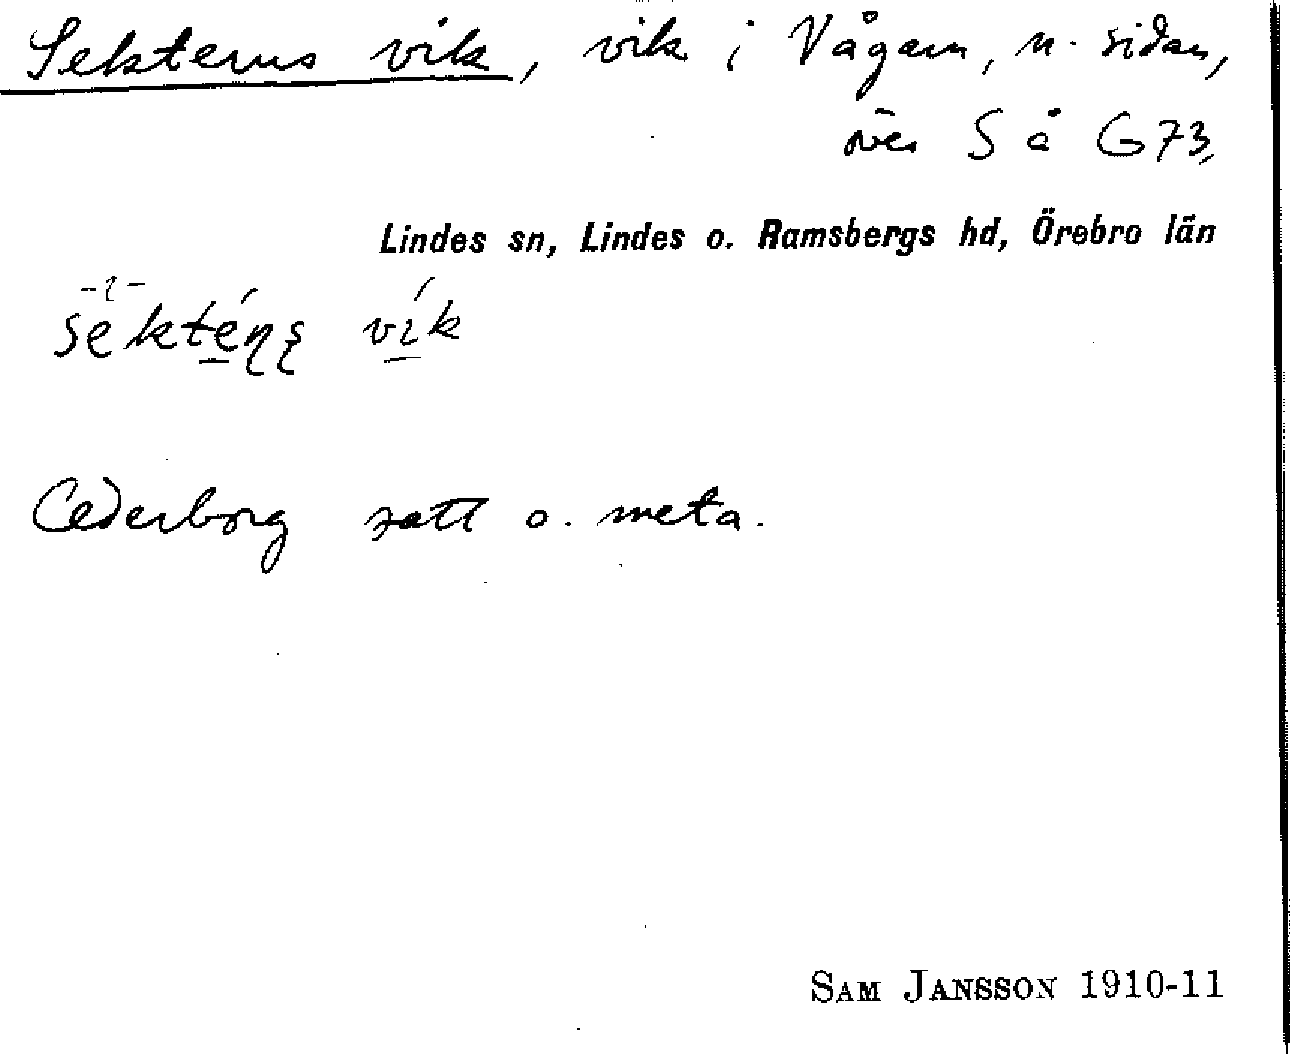 Sekterns vik, vik i Vågarn, n. sidan,
S å G73,
Lindes sn, Lindes o. Ramsbergs hd, Örebro län
vik
Cederborg satt o. meta.
SAM JANSSON 1910-11